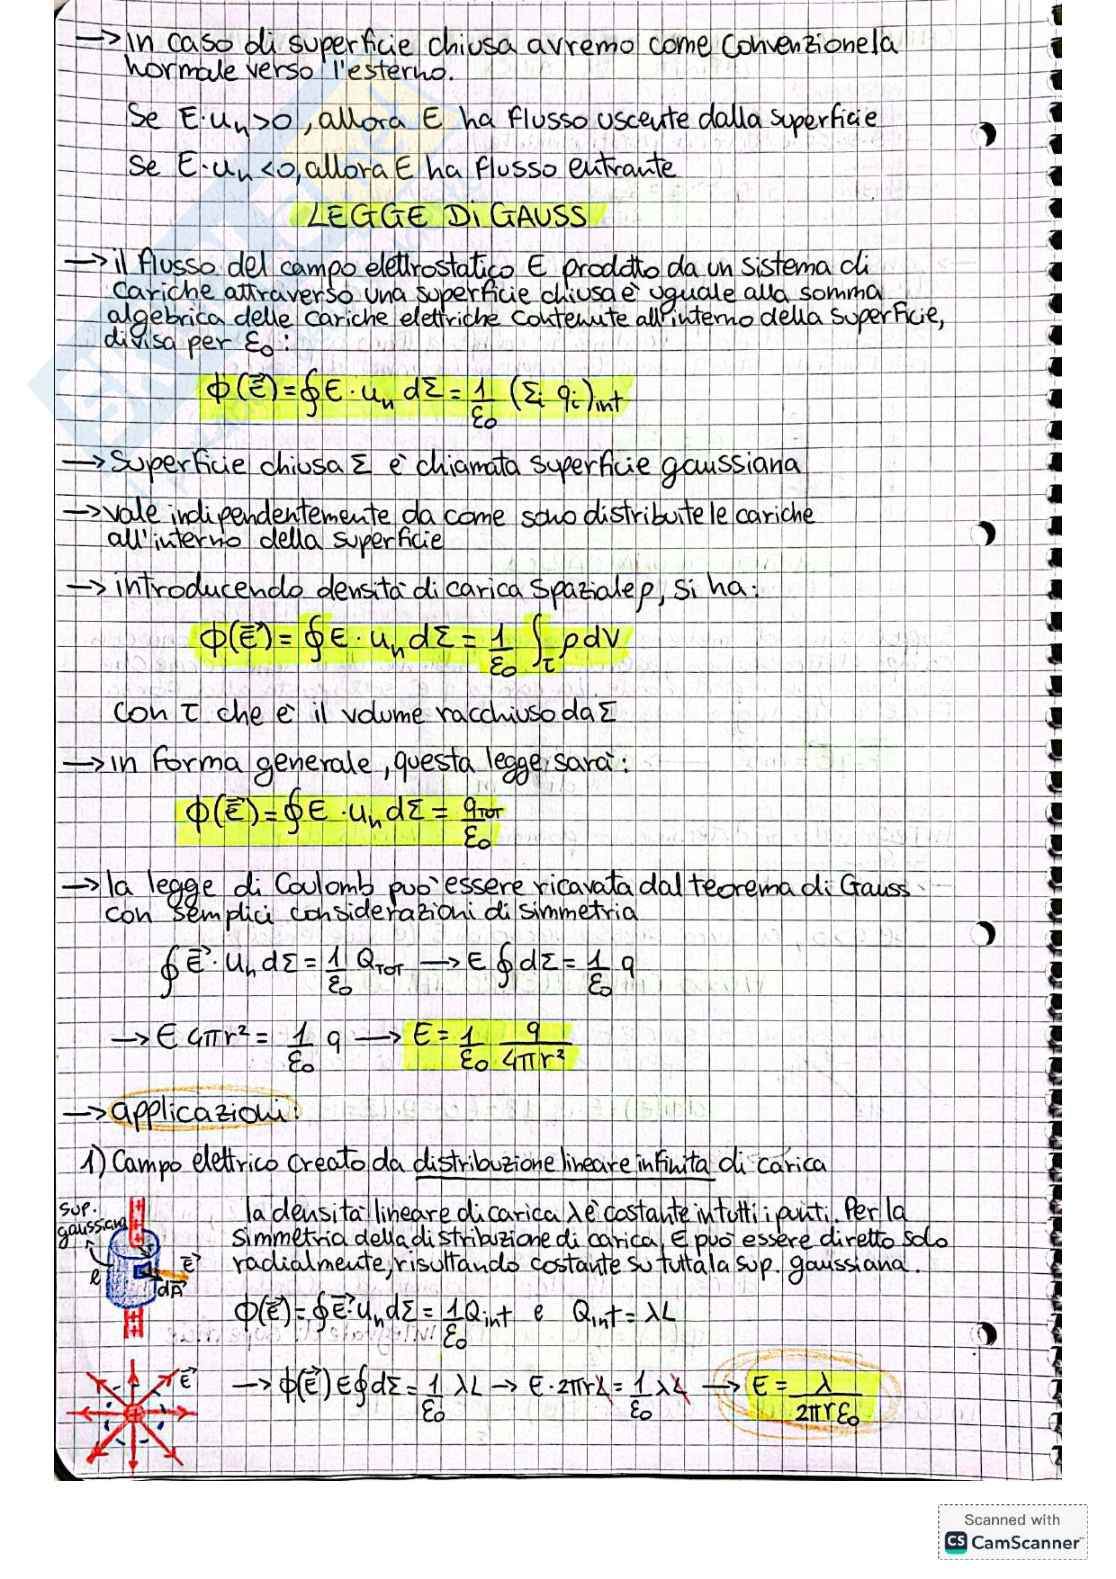 → in caso di superficie chiusa avremo come convenzione la
normale verso l'esterno.
Se E·uₙ>0, allora E ha flusso uscente dalla superficie
Se E·uₙ<0, allora E ha flusso entrante
LEGGE Di GAUSS
→ il flusso del campo elettrostatico E prodotto da un sistema di
cariche attraverso una superficie chiusa è uguale alla somma
algebrica delle cariche elettriche contenute all'interno della superficie,
divisa per ε₀:
Φ(E⃗)=∮E·uₙ dΣ=1/ε₀ (Σᵢ qᵢ)int
→ Superficie chiusa Σ è chiamata superficie gaussiana
→ vale indipendentemente da come sono distribuite le cariche
all'interno della superficie
→ introducendo densità di carica spaziale ρ, si ha:
Φ(E⃗)=∮E·uₙ dΣ=1/ε₀ ∫τ ρdV
con τ che è il volume racchiuso da Σ
→ in forma generale, questa legge sarà:
Φ(E⃗)=∮E·uₙdΣ=qTOT/ε₀
→ la legge di Coulomb può essere ricavata dal teorema di Gauss
con semplici considerazioni di simmetria
∮E⃗·uₙdΣ=1/ε₀ QTOT → E∮dΣ=1/ε₀ q
→ E 4πr²=1/ε₀ q → E=1/ε₀ q/4πr²
→ applicazioni:
1) Campo elettrico creato da distribuzione lineare infinita di carica
sup.
gaussiana
l
E⃗
dA⃗
la densità lineare di carica λ è costante in tutti i punti. Per la
simmetria della distribuzione di carica, E può essere diretto solo
radialmente, risultando costante su tutta la sup. gaussiana.
Φ(E⃗)=∮E⃗·uₙdΣ=1/ε₀ Qint e Qint=λL
E⃗
→ Φ(E⃗) E∮dΣ=1/ε₀ λL → E·2πrL=1/ε₀ λL → E=λ/2πrε₀
Scanned with
CS CamScanner